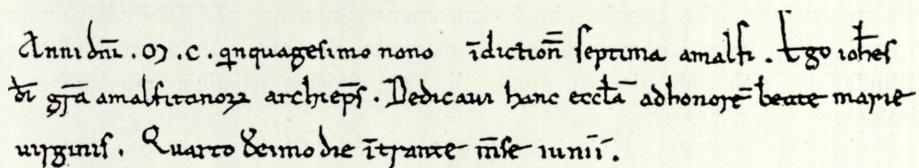 Anni dñi . ꝏ . c . q̃nquagesimo nono ĩdictioñ septima amalfi . Ego ioh̃es
d̃i gr̃a amalfitanoꝝ archiep̃s . Dedicaui hanc eccl̃a adhonorẽ beate marie
uirginis . Quarto decimo die ĩtrante m̃se iunii .